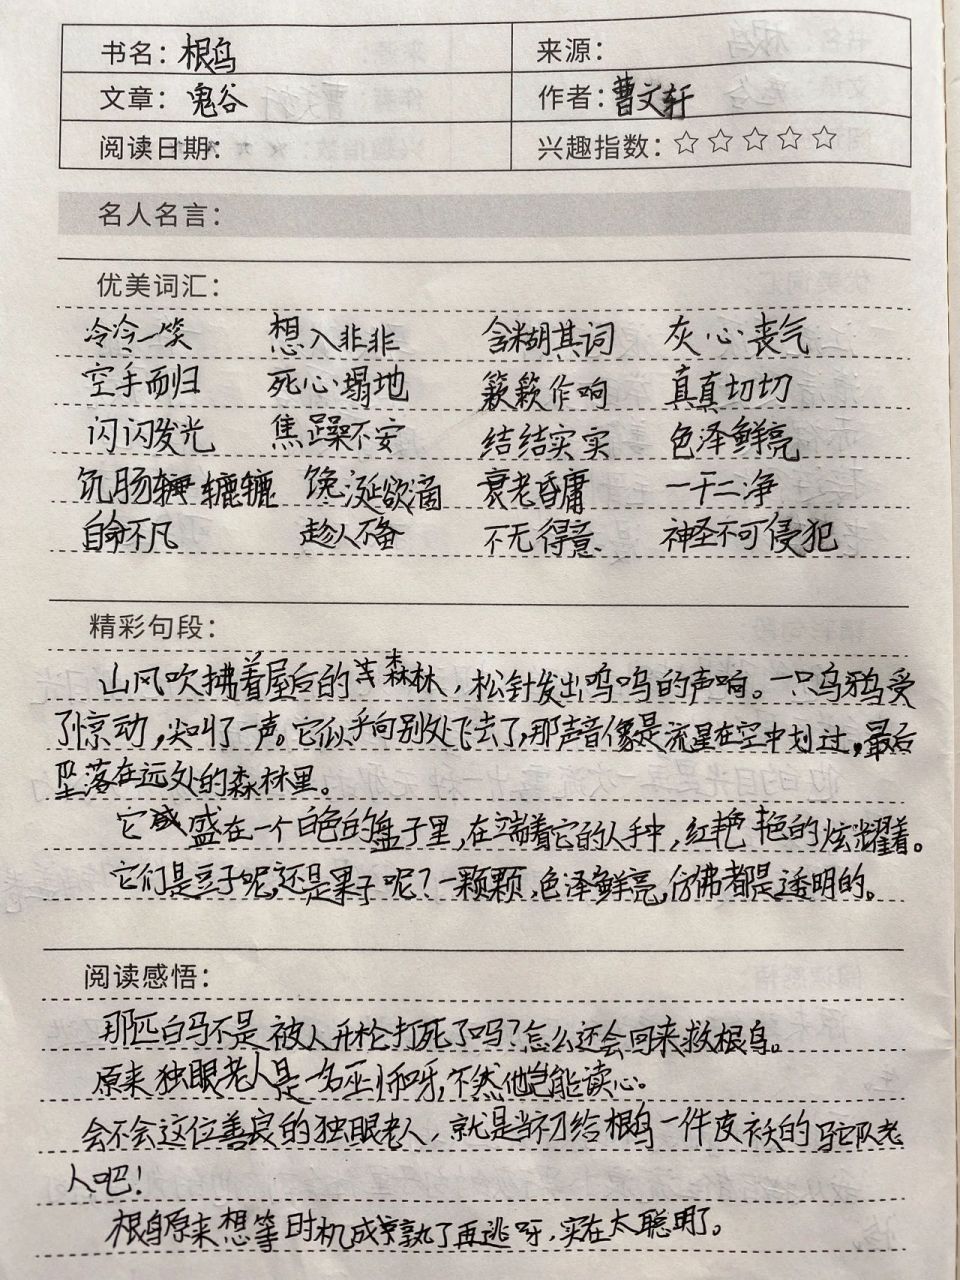 书名：根鸟 来源：
文章：鬼谷 作者：曹文轩
阅读日期： 兴趣指数：☆☆☆☆☆
名人名言：
优美词汇：
冷冷一笑 想入非非 含糊其词 灰心丧气
空手而归 死心塌地 簌簌作响 真真切切
闪闪发光 焦躁不安 结结实实 色泽鲜亮
饥肠辘辘 馋涎欲滴 衰老昏庸 一干二净
自命不凡 趁人不备 不无得意 神圣不可侵犯
精彩句段：
山风吹拂着屋后的森林，松针发出呜呜的声响。一只乌鸦受
了惊动，尖叫了一声。它似乎向别处飞去了，那声音像是流星在空中划过，最后
坠落在远处的森林里。
它盛在一个白色的盘子里，在端着它的人手中，红艳艳的炫耀着。
它们是豆子呢，还是果子呢？一颗颗，色泽鲜亮，仿佛都是透明的。
阅读感悟：
那匹白马不是被人开枪打死了吗？怎么还会回来救根鸟。
原来独眼老人是一名巫师呀，不然他岂能读心。
会不会这位善良的独眼老人，就是当初给根鸟一件皮袄的驼队老
人吧！
根鸟原来想等时机成熟了再逃呀，实在太聪明了。